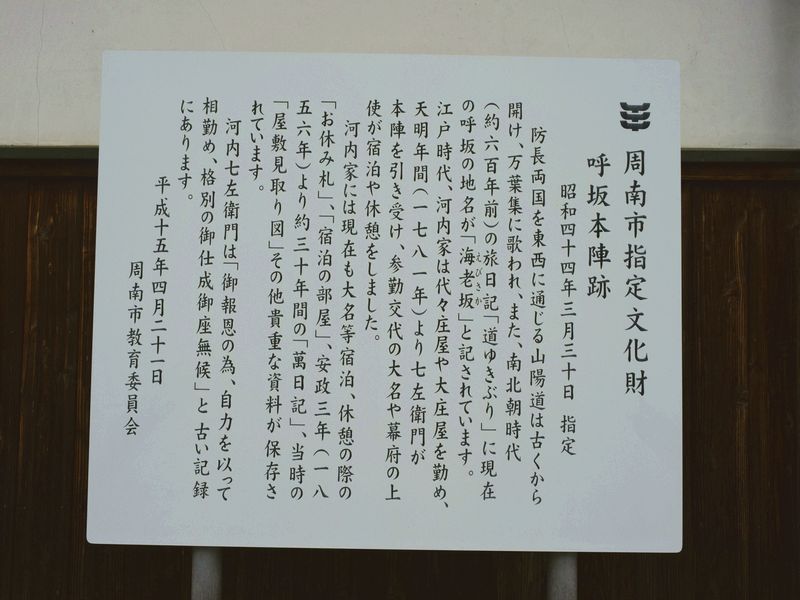 周南市指定文化財
呼坂本陣跡
昭和四十四年三月三十日　指定
防長両国を東西に通じる山陽道は古くから
開け、万葉集に歌われ、また、南北朝時代
(約六百年前)の旅日記「道ゆきぶり」に現在
の呼坂の地名が「海老坂」と記されています。
えびさか
江戸時代、河内家は代々庄屋や大庄屋を勤め、
天明年間(一七八一年)より七左衛門が
本陣を引き受け、参勤交代の大名や幕府の上
使が宿泊や休憩をしました。
河内家には現在も大名等宿泊、休憩の際の
「お休み札」、「宿泊の部屋」、安政三年(一八
五六年)より約三十年間の「萬日記」、当時の
「屋敷見取り図」その他貴重な資料が保存さ
れています。
河内七左衛門は「御報恩の為、自力を以って
相勤め、格別の御仕成御座無候」と古い記録
にあります。
平成十五年四月二十一日
周南市教育委員会